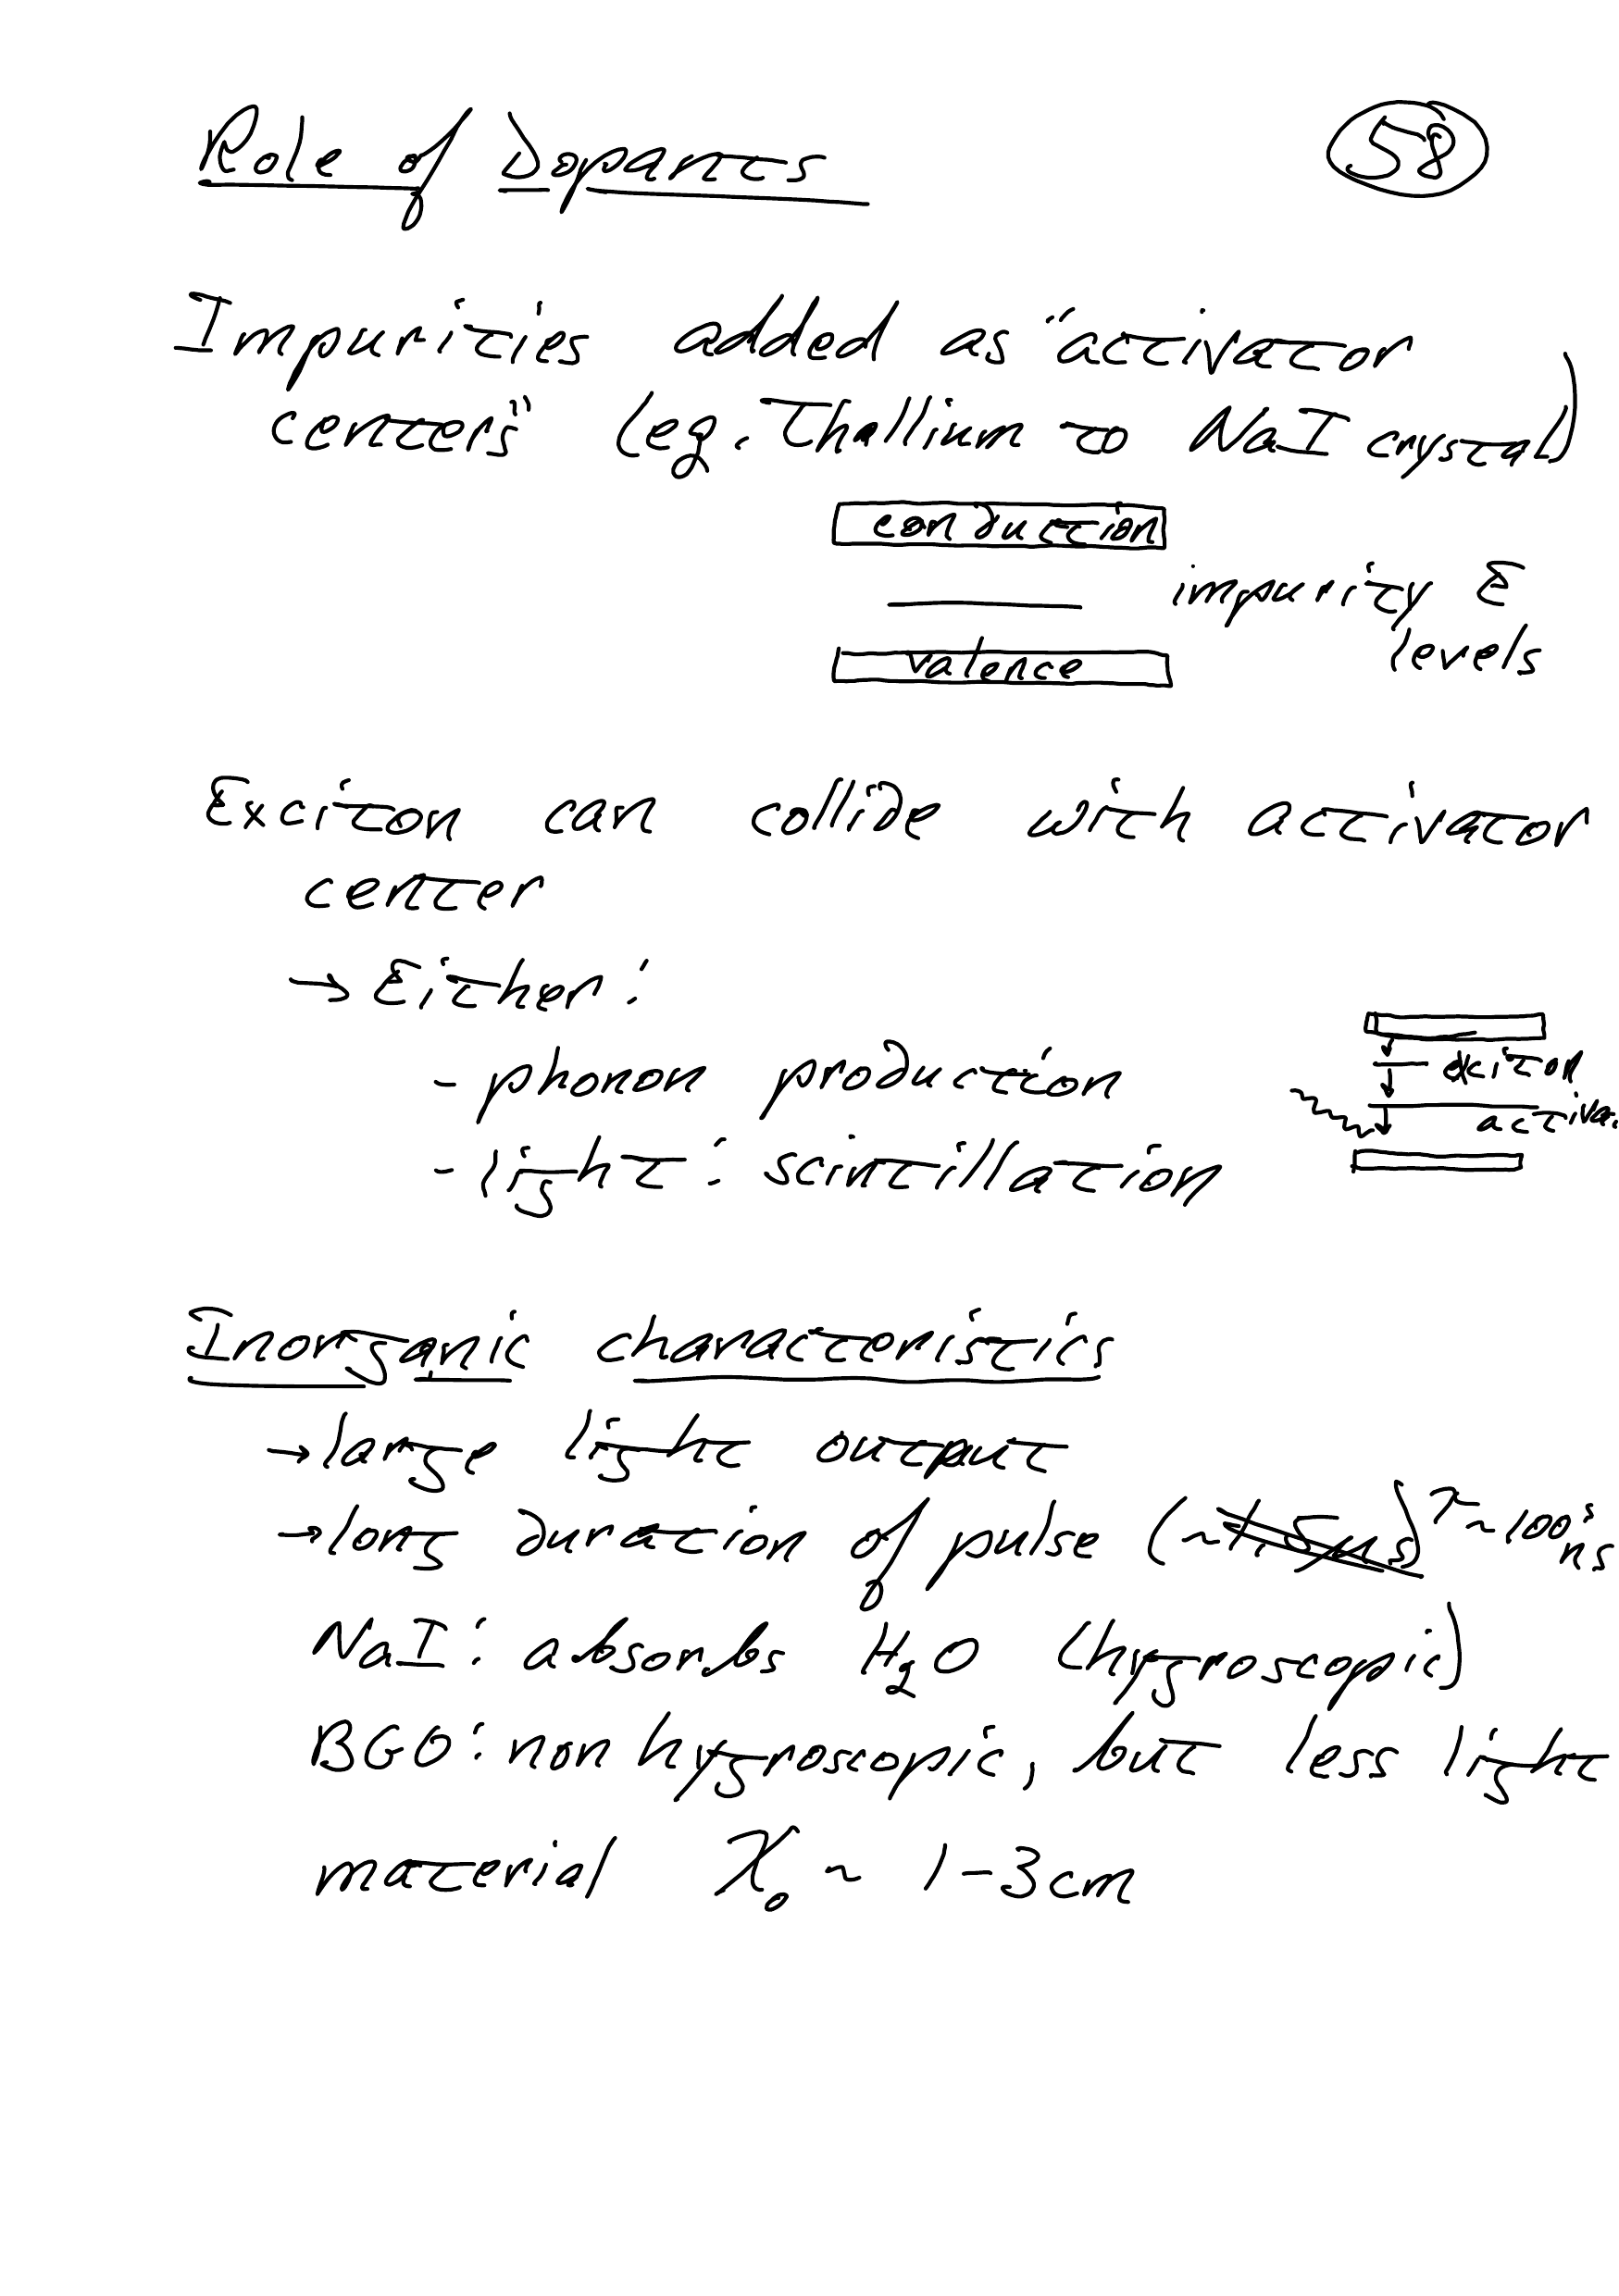 Role of Dopants
58
Impurities added as "activator
centers" (eg. Thallium to NaI crystal)
conduction
impurity E
levels
valence
Exciton can collide with activator
center
→ Either:
- phonon production
exciton
activa.
- light: scintillation
Inorganic characteristics
→ large light output
→ long duration of pulse (~1.5μs) τ~100's
ns
NaI: absorbs H₂O (hygroscopic)
BGO: non hygroscopic, but less light
material X₀ ~ 1-3cm